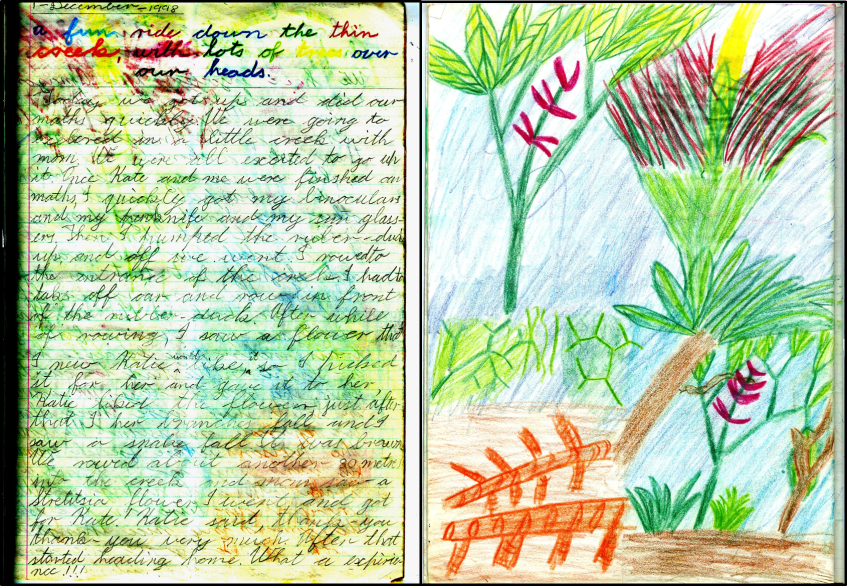 1-December-1998
a fun ride down the thin
creek, with lots of trees over
our heads.
Today we got up and did our
maths quickly. We were going to
in a little creek with
mom. We were all excited to go up
it. Grie Kate and me were finished our
maths, I quickly got my binoculars
and my penknife and my sun glass-
ers. Then I pumped the ruber-duck
up and off we went. I rowed to
the entrance of the creek. I had to
take off oar and row in front
of the rubber-duck. After while
of rowing, I saw a flower that
I new Katie likes, so I picked
it for her and gave it to her.
Katie liked the flower. just after
that I her branches fall and I
saw a snake fall it was brown
We rowed about another 30 metres
into the creek and mom saw a
Stretitsia flower I went and got
for Kate. Katie said, thank-you
thank-you very much. After that
started heading home. What a experie-
nce!!!